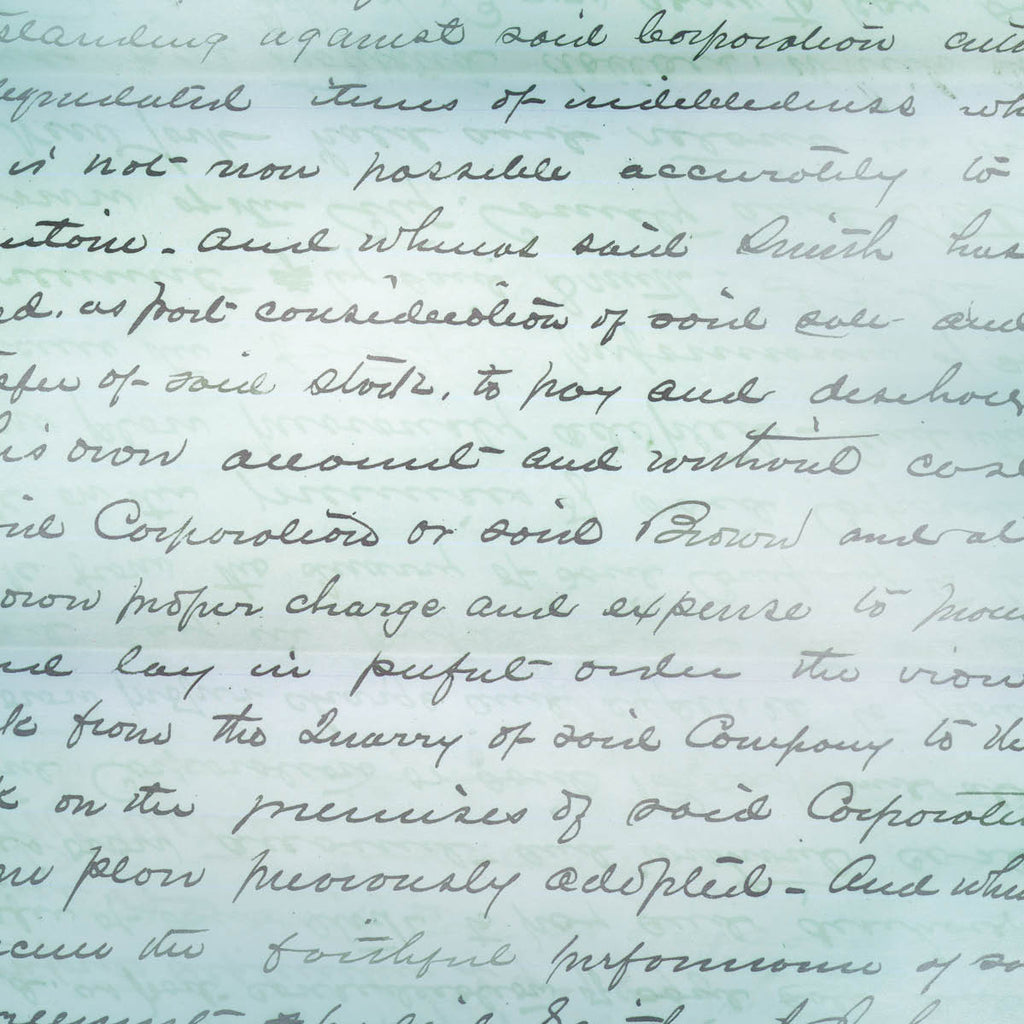 standing against said Corporation
items of indebtedness
is not now possible accurately to
And whereas said Smith has
as part consideration of said sale and
of said stock, to pay and
his own account and without cost
said Corporation or said Brown and at
own proper charge and expense to
and lay in perfect order the
from the Quarry of said Company to the
on the premises of said
plan previously adopted - And
the faithful performance of